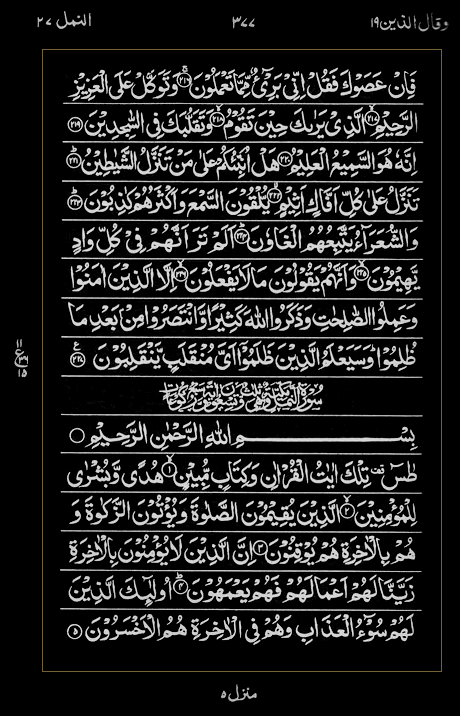 وقال الذين ١٩ ٣٧٧ النمل ٢٧
فَاِنْ عَصَوْكَ فَقُلْ اِنِّىْ بَرِىْٓءٌ مِّمَّا تَعْمَلُوْنَ ﴿۲۱۶﴾ وَتَوَكَّلْ عَلَى الْعَزِيْزِ
الرَّحِيْمِ ﴿۲۱۷﴾ الَّذِىْ يَرٰىكَ حِيْنَ تَقُوْمُ ﴿۲۱۸﴾ وَتَقَلُّبَكَ فِى السّٰجِدِيْنَ ﴿۲۱۹﴾
اِنَّهٗ هُوَ السَّمِيْعُ الْعَلِيْمُ ﴿۲۲۰﴾ هَلْ اُنَبِّئُكُمْ عَلٰى مَنْ تَنَزَّلُ الشَّيٰطِيْنُ ﴿۲۲۱﴾
تَنَزَّلُ عَلٰى كُلِّ اَفَّاكٍ اَثِيْمٍ ﴿۲۲۲﴾ يُّلْقُوْنَ السَّمْعَ وَاَكْثَرُهُمْ كٰذِبُوْنَ ﴿۲۲۳﴾
وَالشُّعَرَآءُ يَتَّبِعُهُمُ الْغَاوٗنَ ﴿۲۲۴﴾ اَلَمْ تَرَ اَنَّهُمْ فِىْ كُلِّ وَادٍ
يَّهِيْمُوْنَ ﴿۲۲۵﴾ وَاَنَّهُمْ يَقُوْلُوْنَ مَا لَا يَفْعَلُوْنَ ﴿۲۲۶﴾ اِلَّا الَّذِيْنَ اٰمَنُوْا
وَعَمِلُوا الصّٰلِحٰتِ وَذَكَرُوا اللّٰهَ كَثِيْرًا وَّانْتَصَرُوْا مِنْۢ بَعْدِ مَا
ظُلِمُوْا ؕ وَسَيَعْلَمُ الَّذِيْنَ ظَلَمُوْٓا اَىَّ مُنْقَلَبٍ يَّنْقَلِبُوْنَ ﴿۲۲۷﴾
ع
١١
١٥
بِسْمِ اللّٰهِ الرَّحْمٰنِ الرَّحِيْمِ
طٰسٓ ۚ تِلْكَ اٰيٰتُ الْقُرْاٰنِ وَكِتَابٍ مُّبِيْنٍ ﴿۱﴾ هُدًى وَّبُشْرٰى
لِلْمُؤْمِنِيْنَ ﴿۲﴾ الَّذِيْنَ يُقِيْمُوْنَ الصَّلٰوةَ وَيُؤْتُوْنَ الزَّكٰوةَ وَ
هُمْ بِالْاٰخِرَةِ هُمْ يُوْقِنُوْنَ ﴿۳﴾ اِنَّ الَّذِيْنَ لَا يُؤْمِنُوْنَ بِالْاٰخِرَةِ
زَيَّنَّا لَهُمْ اَعْمَالَهُمْ فَهُمْ يَعْمَهُوْنَ ﴿۴﴾ اُولٰٓئِكَ الَّذِيْنَ
لَهُمْ سُوْٓءُ الْعَذَابِ وَهُمْ فِى الْاٰخِرَةِ هُمُ الْاَخْسَرُوْنَ ﴿۵﴾
منزل ٥